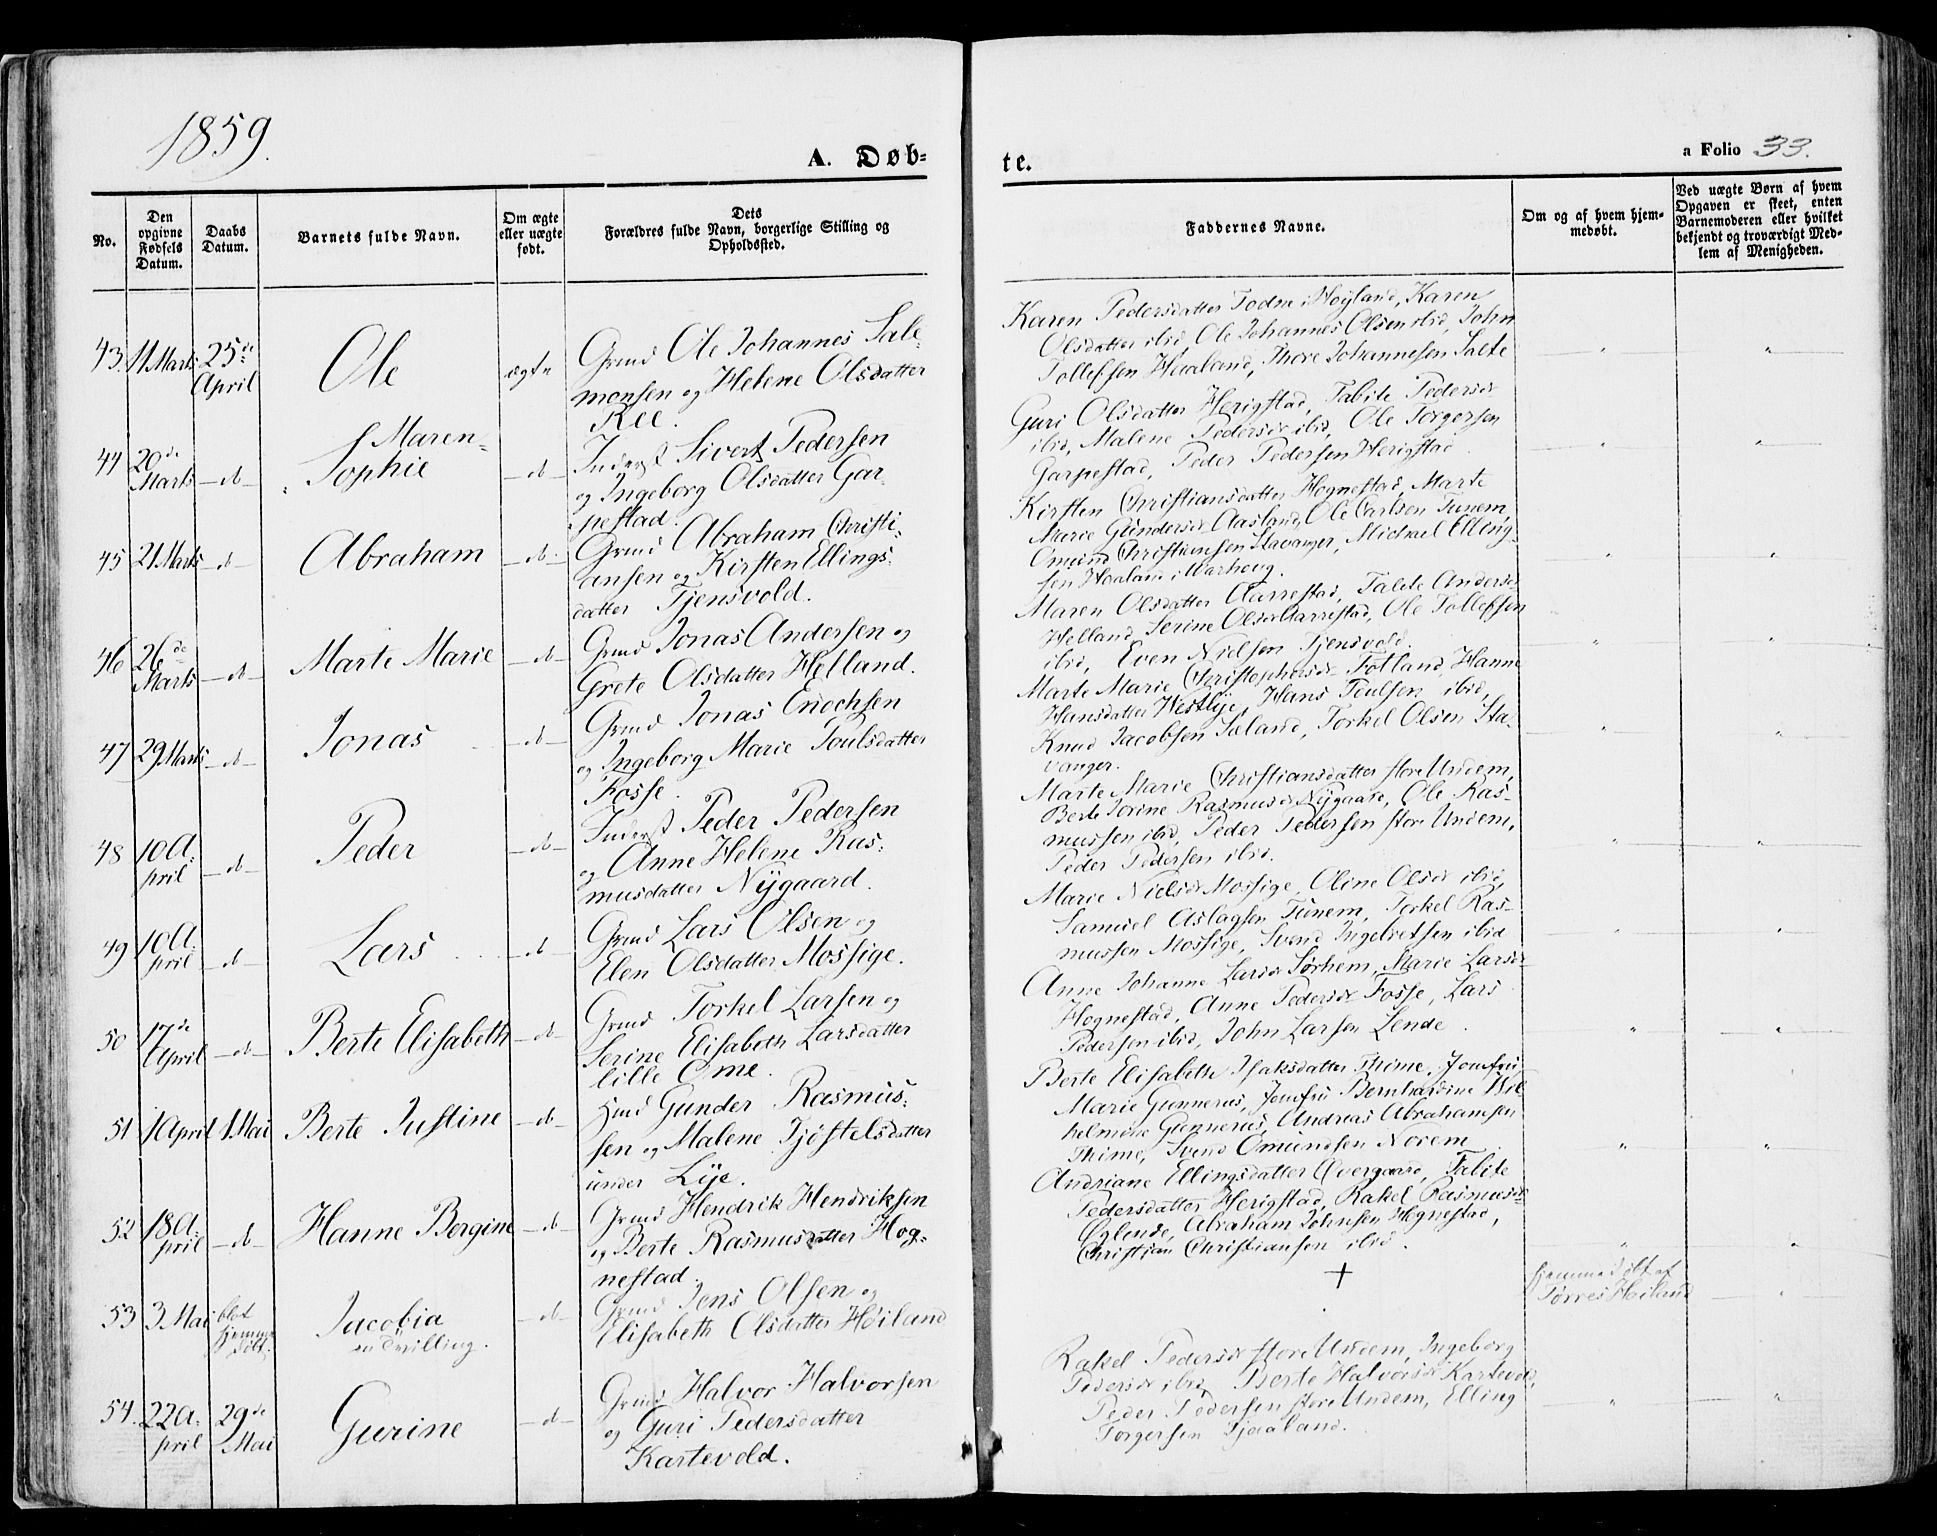 1859.
A. Døb-
te.
a Folio 33.
No.
Den
opgivne
Fødsels
Datum.
Daabs
Datum.
Barnets fulde Navn.
Om ægte
eller uægte
født.
Dets
Forældres fulde Navn, borgerlige Stilling og
Opholdssted.
Faddernes Navne.
Om og af hvem hjem-
medøbt.
Ved uægte Børn af hvem
Opgaven er skeet, enten
Barnemoderen eller hvilket
bekjendt og troværdigt Med-
lem af Menigheden.
43. 11 Marts 25de April
Ole
ægte
Grmd Ole Johannes Sale-
monsen og Helene Olsdatter
Ree.
Karen Pedersdatter Todne i Høyland, Karen
Olsdatter ibid, Ole Johannes Olsen ibid, John
Tollefsen Haaland, Thore Johannesen Salte
44 20de Marts -d-
Maren
Sophie
-d-
Inderst Sivert Pedersen
og Ingeborg Olsdatter Gar-
pestad.
Guri Olsdatter Herigstad, Tabite Pedersdr
ibid, Malene Pedersdr ibid, Ole Torgersen
Garpestad, Peder Pedersen Herigstad
45 21 Marts -d-
Abraham
-d-
Grmd Abraham Christi-
ansen og Kirsten Ellings-
datter Tjensvold.
Kirsten Christiansdatter Hognestad, Marte
Marie Gundersdr Aasland, Ole Carlsen Tunem
Omund Christiansen Stavanger, Michael Elling-
sen Haaland i Warhoug.
46 26de Marts -d-
Marte Marie
-d-
Grmd Jonas Andersen og
Grete Olsdatter Helland.
Maren Olsdatter Aarrestad, Talete Andersdr
Helland, Serine Olsdr Aarrestad, Ole Tollefsen
ibid, Even Nielsen Tjensvold.
47 29 Marts -d-
Jonas
-d-
Grmd Jonas Enochsen
og Ingeborg Marie Poulsdatter
Fosse.
Marte Marie Christophersdr Fotland, Hanne
Hansdatter Westlye, Hans Poulsen ibid,
Knud Jacobsen Sæland, Torkel Olsen Sta-
vanger.
48 10 A-
pril -d-
Peder
-d-
Inderst Peder Pedersen
og Anne Helene Ras-
musdatter Nygaard.
Marte Marie Christiansdatter store Undem,
Berte Serine Rasmusdr Nygaard, Ole Ras-
mussen ibid, Peder Pedersen store Undem,
Peder Pedersen ibid.
49 10 A-
pril -d-
Lars
-d-
Grmd Lars Olsen og
Elen Olsdatter Mossige.
Marie Nielsdr Mossige, Oline Olsdr ibid,
Samuel Aslagsen Tunem, Torkel Ras-
mussen Mossige, Svend Ingebretsen ibid
50 17de April -d-
Berte Elisabeth
-d-
Grmd Torkel Larsen og
Serine Elisabeth Larsdatter
lille Ome.
Anne Johanne Larsdr Sørhem, Marie Larsdr
Hognestad, Anne Pedersdr Fosse, Lars
Pedersen ibid, John Larsen Lende.
51 1 April 1 Mai
Berte Justine
-d-
Hmd Gunder Rasmus-
sen og Malene Tjøstelsdatter
under Lye.
Berte Elisabeth Isaksdatter Thime, Jomfru
Marie Gunnerus, Jomfru Bernhardine Wil-
helmine Gunnerus, Andreas Abrahamsen
Thime, Svend Omundsen Norem
52 18 A-
pril -d-
Hanne Bergine
-d-
Grmd Hendrik Hendriksen
og Berte Rasmusdatter Hog-
nestad.
Andriane Ellingsdatter Overgaard, Tabite
Pedersdatter Herigstad, Rakel Rasmusdr
Øglende, Abraham Johnsen Hognestad,
Christian Christiansen ibid.
53 3 Mai blot
hjemme
døbt.
Jacobia
en Tvilling.
-d-
Grmd Jens Olsen og
Elisabeth Olsdatter Høiland
+
hjemmedøbt af
Tørres Høiland
54. 22 A-
pril 29de
Mai
Gurine
-d-
Grmd Halvor Halvorsen
og Guri Pedersdatter
Kartevold.
Rakel Pedersdr store Undem, Ingeborg
Pedersdr ibid, Berte Halvorsdr Kartevold,
Peder Pedersen store Undem, Elling
Torgersen Tjaaland.